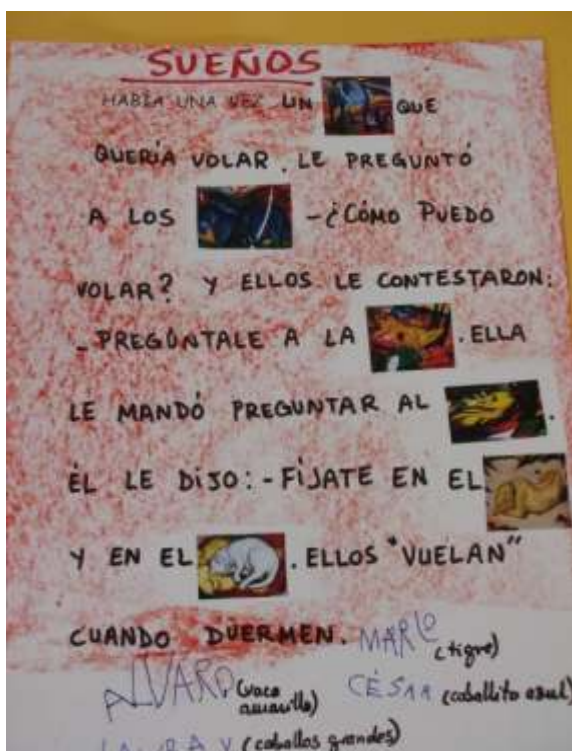 SUEÑOS
HABÍA UNA VEZ UN QUE
QUERÍA VOLAR. LE PREGUNTÓ
A LOS -¿CÓMO PUEDO
VOLAR? Y ELLOS LE CONTESTARON:
- PREGÚNTALE A LA . ELLA
LE MANDÓ PREGUNTAR AL .
ÉL LE DIJO: - FÍJATE EN EL
Y EN EL . ELLOS "VUELAN"
CUANDO DUERMEN. MARIO (tigre)
ALVARO (vaca amarilla) CÉSAR (caballito azul)
(caballos grandes)